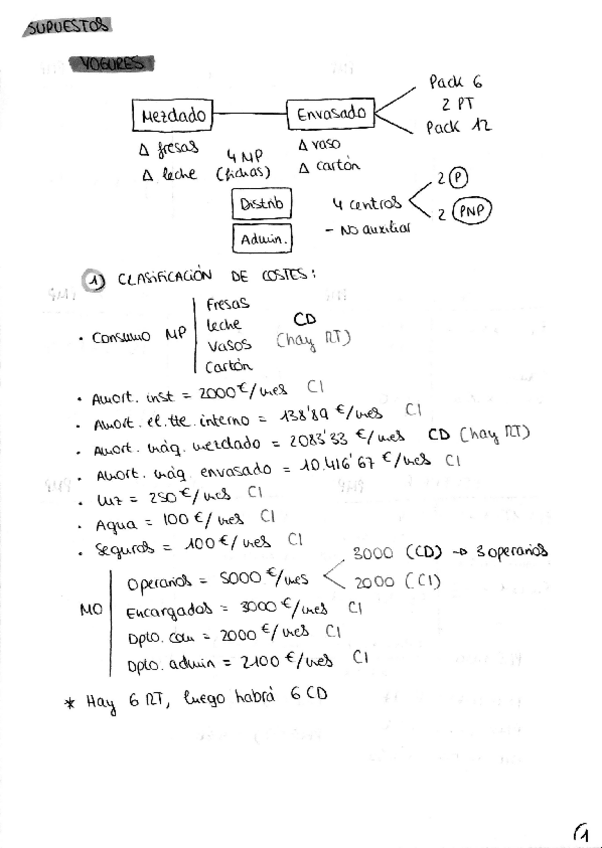 SUPUESTOS
YOGURES
Pack 6
Mezclado Envasado 2 PT
Pack 12
Δ fresas 4 MP Δ vaso
Δ leche (fichas) Δ cartón
Distrib 4 centros 2 P
2 PNP
Admin. - No auxiliar
1) CLASIFICACIÓN DE COSTES:
Fresas
Leche CD
· Consumo MP Vasos (hay RT)
Cartón
· Amort. inst = 2000 €/mes CI
· Amort. el. tte. interno = 138'89 €/mes CI
· Amort. máq. mezclado = 2083'33 €/mes CD (hay RT)
· Amort. máq. envasado = 10.416'67 €/mes CI
· Luz = 250 €/mes CI
· Agua = 100 €/mes CI
· Seguros = 100 €/mes CI
3000 (CD) → 3 operarios
Operarios = 5000 €/mes 2000 (CI)
MO Encargados = 3000 €/mes CI
Dpto. com = 2000 €/mes CI
Dpto. admin = 2100 €/mes CI
* Hay 6 RT, luego habrá 6 CD
1